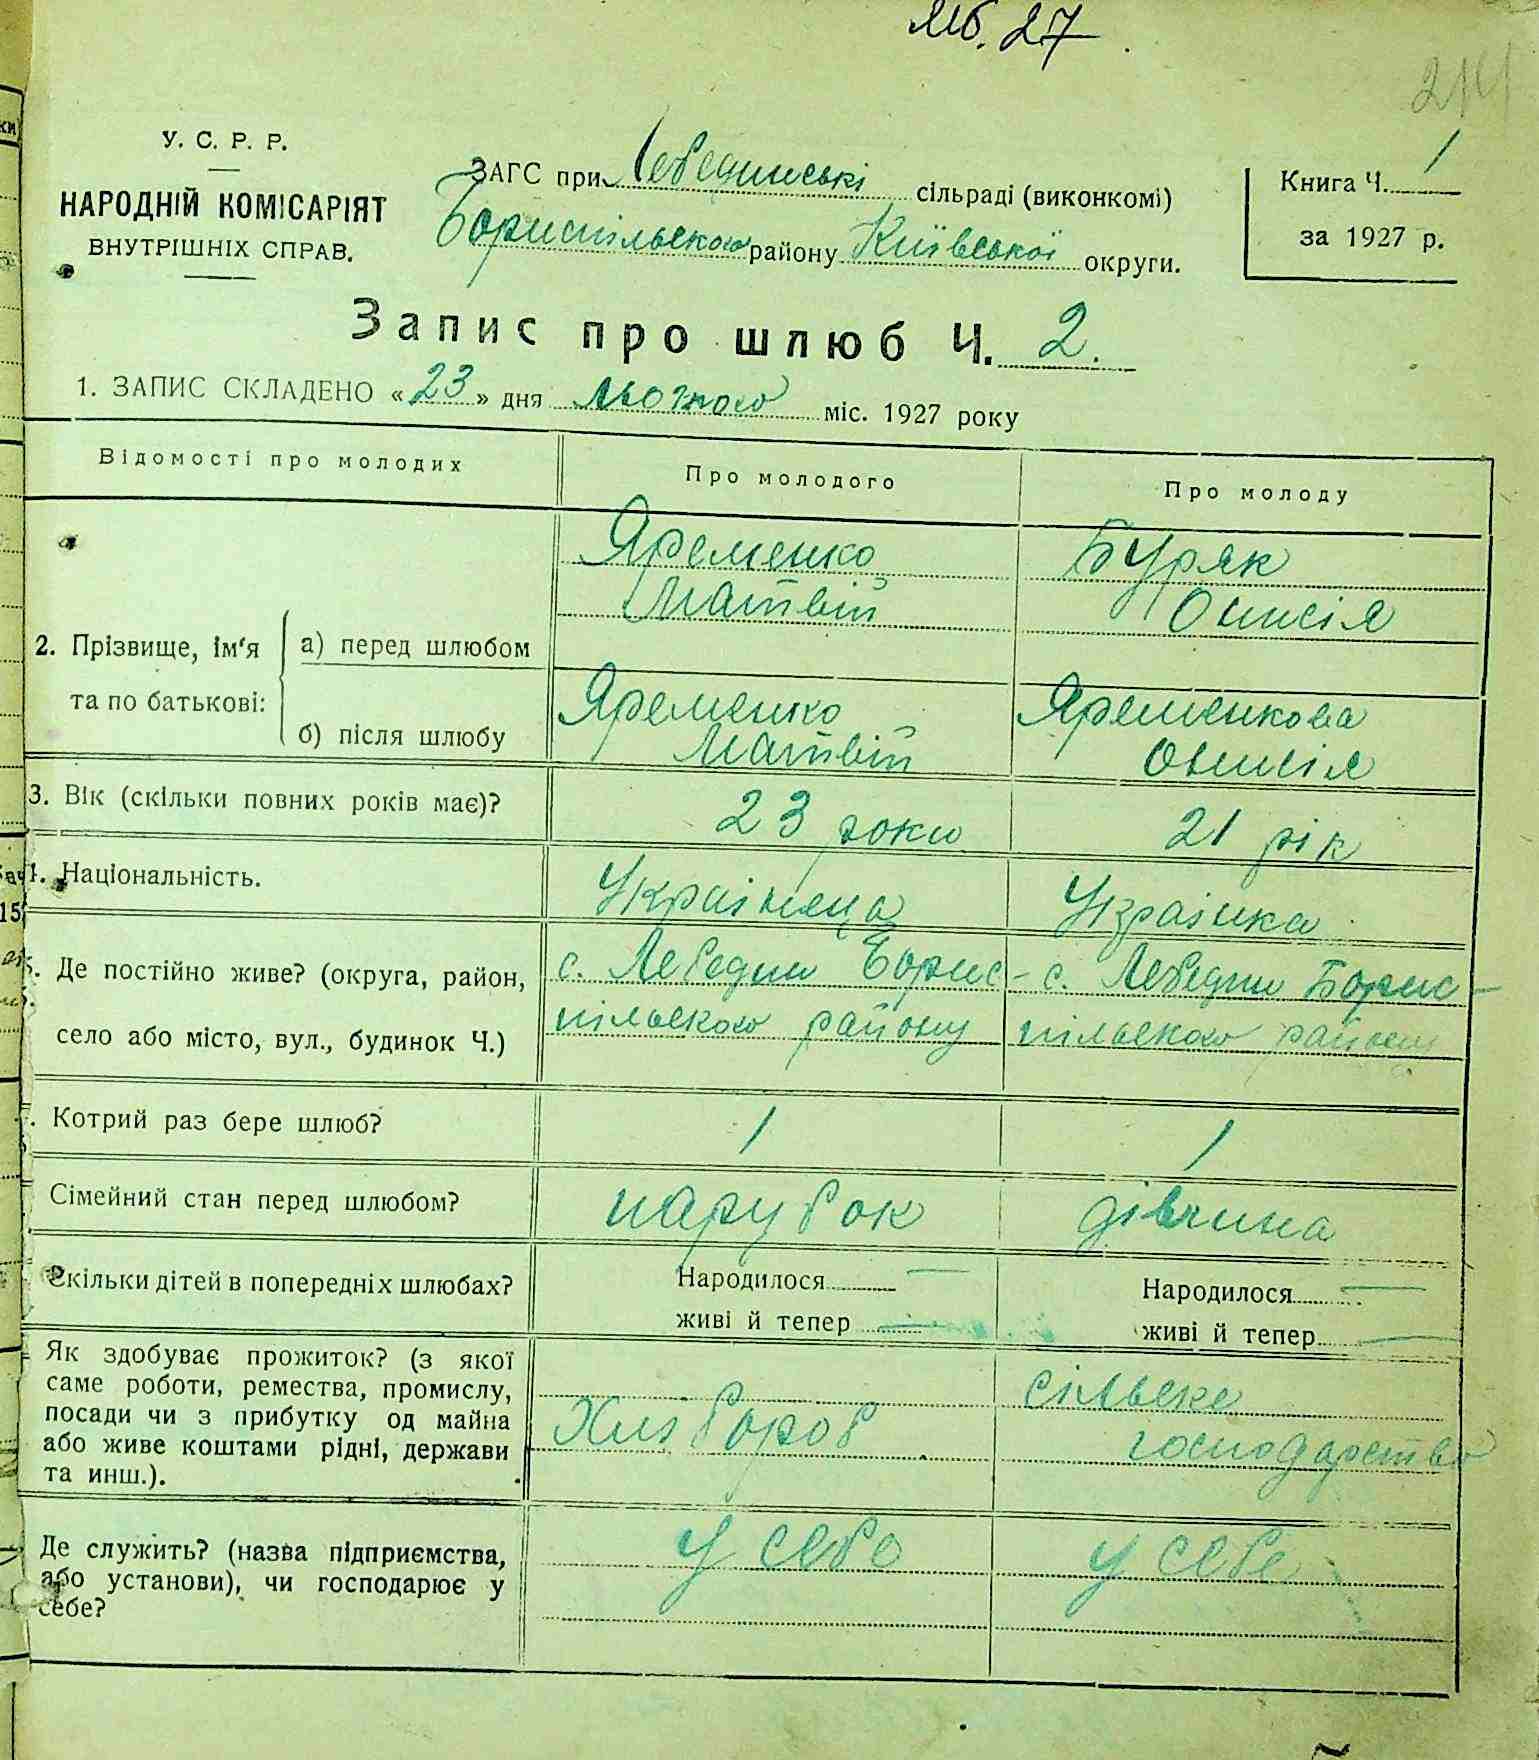 Мб. 27
214
У. С. Р. Р.
НАРОДНІЙ КОМІСАРІЯТ
ВНУТРІШНІХ СПРАВ.
ЗАГС при Лебединські сільраді (виконкомі)
Бориспільского району Київської округи.
Книга Ч. 1
за 1927 р.
Запис про шлюб Ч. 2.
1. ЗАПИС СКЛАДЕНО «23» дня лютого міс. 1927 року
Відомості про молодих
Про молодого
Про молоду
2. Прізвище, ім'я
та по батькові:
а) перед шлюбом
Яременко
Матвій
Буряк
Онисія
б) після шлюбу
Яременко
Матвій
Яременкова
Онисія
3. Вік (скільки повних років має)?
23 роки
21 рік
4. Національність.
Українець
Українка
5. Де постійно живе? (округа, район,
село або місто, вул., будинок Ч.)
с. Лебедин Борис-
пільского району
с. Лебедин Борис-
пільского району
Котрий раз бере шлюб?
1
1
Сімейний стан перед шлюбом?
парубок
дівчина
Скільки дітей в попередніх шлюбах?
Народилося —
живі й тепер —
Народилося —
живі й тепер —
Як здобуває прожиток? (з якої
саме роботи, ремества, промислу,
посади чи з прибутку од майна
або живе коштами рідні, держави
та инш.).
Хлібороб
сільске
господарство
Де служить? (назва підприємства,
або установи), чи господарює у
себе?
у себе
у себе